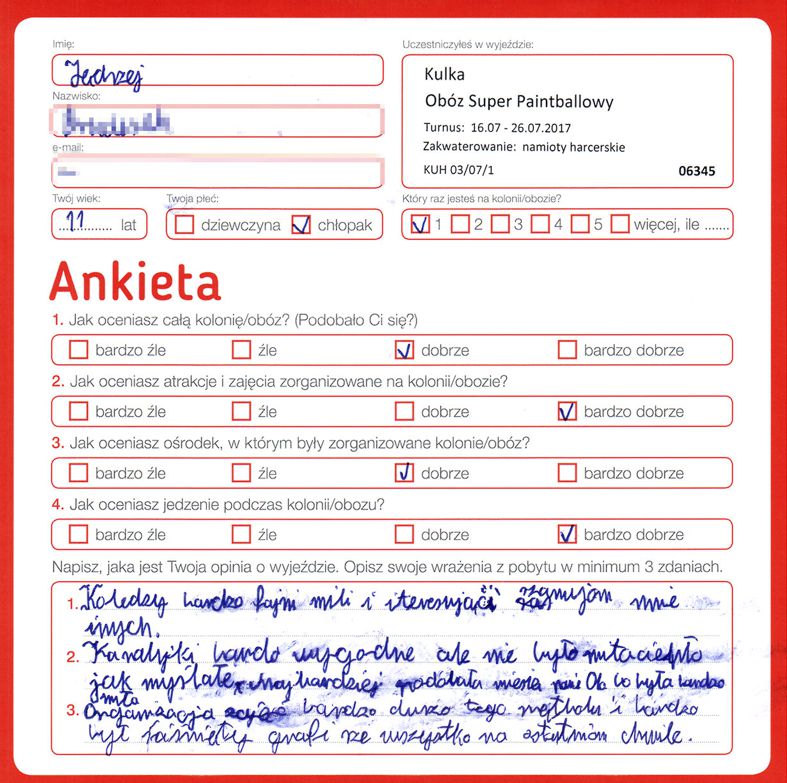 Imię:
Jędrzej
Nazwisko:
e-mail:
Twój wiek:
11 lat
Twoja płeć:
dziewczyna chłopak
Uczestniczyłeś w wyjeździe:
Kulka
Obóz Super Paintballowy
Turnus: 16.07 - 26.07.2017
Zakwaterowanie: namioty harcerskie
KUH 03/07/1 06345
Który raz jesteś na kolonii/obozie?
1 2 3 4 5 więcej, ile .......
Ankieta
1. Jak oceniasz całą kolonię/obóz? (Podobało Ci się?)
bardzo źle źle dobrze bardzo dobrze
2. Jak oceniasz atrakcje i zajęcia zorganizowane na kolonii/obozie?
bardzo źle źle dobrze bardzo dobrze
3. Jak oceniasz ośrodek, w którym były zorganizowane kolonie/obóz?
bardzo źle źle dobrze bardzo dobrze
4. Jak oceniasz jedzenie podczas kolonii/obozu?
bardzo źle źle dobrze bardzo dobrze
Napisz, jaka jest Twoja opinia o wyjeździe. Opisz swoje wrażenia z pobytu w minimum 3 zdaniach.
1. Koledzy bardzo fajni mili i mnie
inych.
2. bardo wygodne ale nie było
jak myślałe najbardziej pani Ola bo była bardzo
miła
3. bardzo dużo tego i bardzo
był że wszystko na chwile.